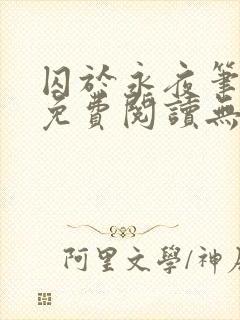 囚於永夜筆
免費閱讀無
阿里文學/神居